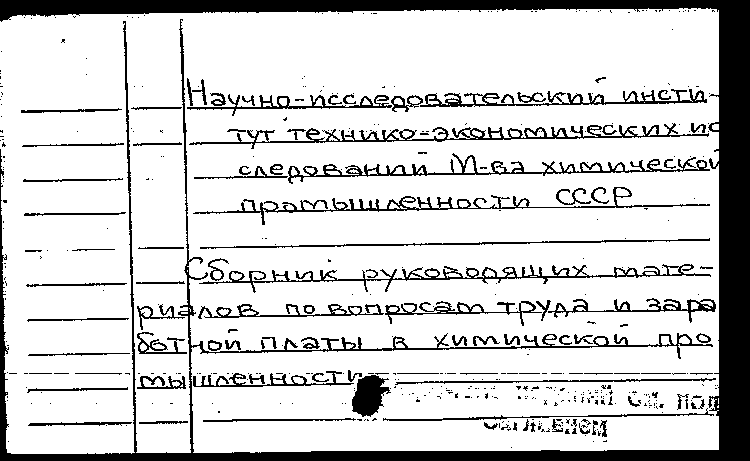 Научно-исследовательский инсти-
тут технико-экономических ис
следований М-ва химической
промышленности СССР
Сборник руководящих мате-
риалов по вопросам труда и зара
ботной платы в химической про
мышленности
изданий см. под